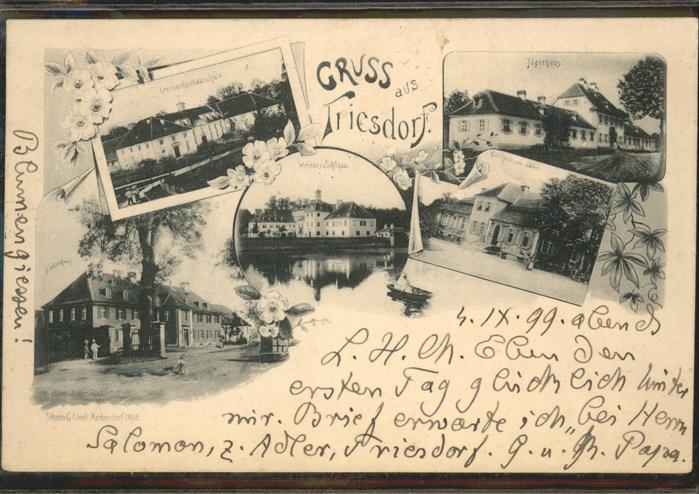 Kreisackerbauschule
GRUSS
aus
Triesdorf.
Jägerhaus
Weisses Schloss
Blumen giessen!
4. IX. 99. abends
L. H. M. Eben den
ersten Tag glücklich hinter
mir. Brief erwarte ich „bei Herrn
Salomon, z. Adler, Triesdorf. G. u. K. Papa.